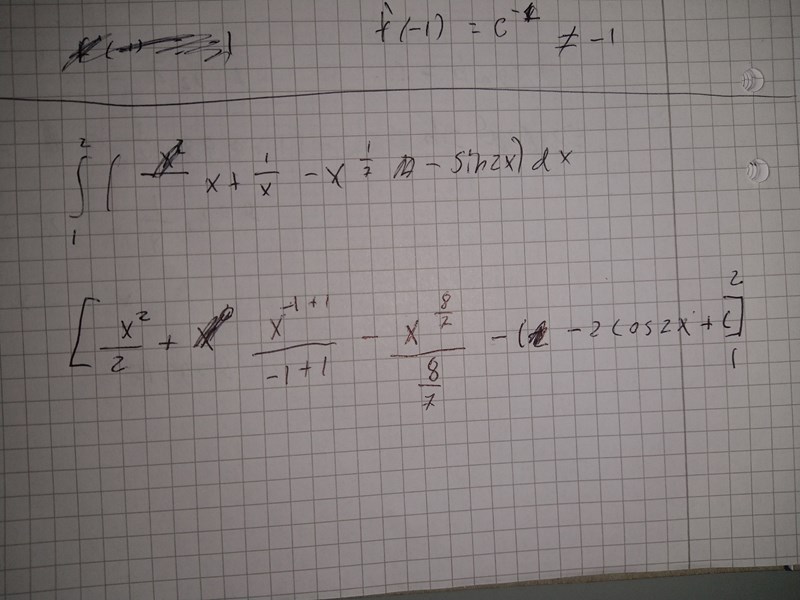 f(-1) = e^-1 ≠ -1
∫₁² ( x + 1/x - x^(1/7) - sin2x) dx
[ x²/2 + x^(-1+1)/(-1+1) - x^(8/7)/(8/7) - ( -2cos2x + C ]₁²